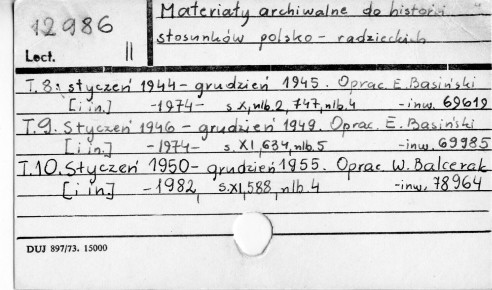 12986
Lect. II
Materiały archiwalne do historii
stosunków polsko-radzieckich
T.8: styczeń 1944-grudzień 1945. Oprac. E. Basiński
[i in.] -1974- s.X, nlb.2, 747, nlb.4 -inw. 69612
T.9. Styczeń 1946 - grudzień 1949. Oprac. E. Basiński
[i in.] -1974- s.XI, 634, nlb.5 -inw. 69985
T.10. Styczeń 1950- grudzień 1955. Oprac. W. Balcerak
[i in.] -1982, s.XI, 588, nlb.4 -inw. 78964
DUJ 897/73. 15000